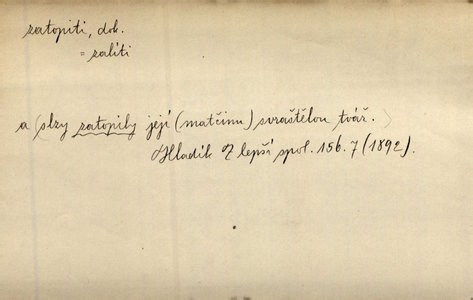 zatopiti, dok.
= zalíti
a (slzy zatopily její (matčinu) svraštělou tvář.)
Hladík Z lepší spol. 156. 7 (1892).